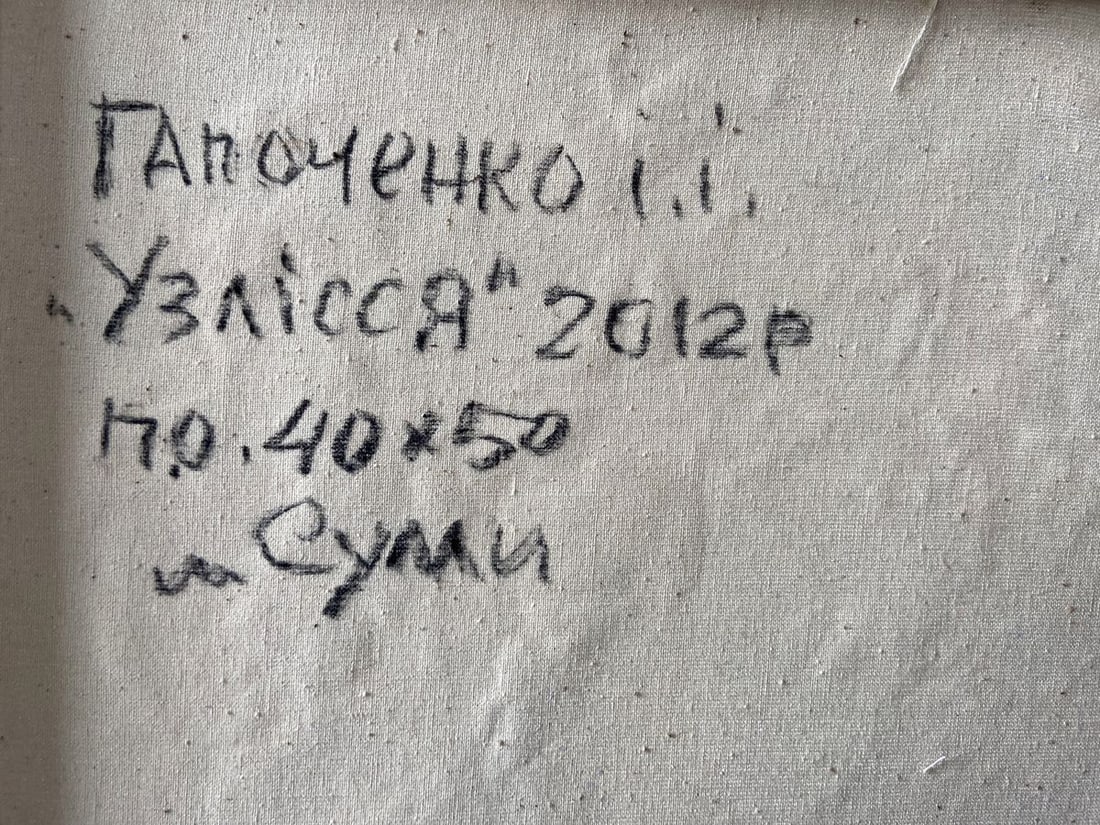 Гапоченко І.І.
„Узлісся" 2012р
п.о. 40×50
м Суми